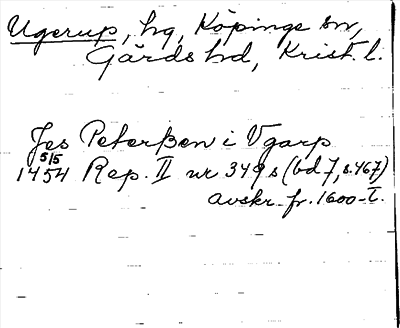 Ugerup, hg, Köpinge sn,
Gärds hd, Krist. l.
Jes Peterßen i Vgarp
5/5
1454 Rep. II nr 349 s (bd 7, s. 467)
avskr. fr. 1600-t.